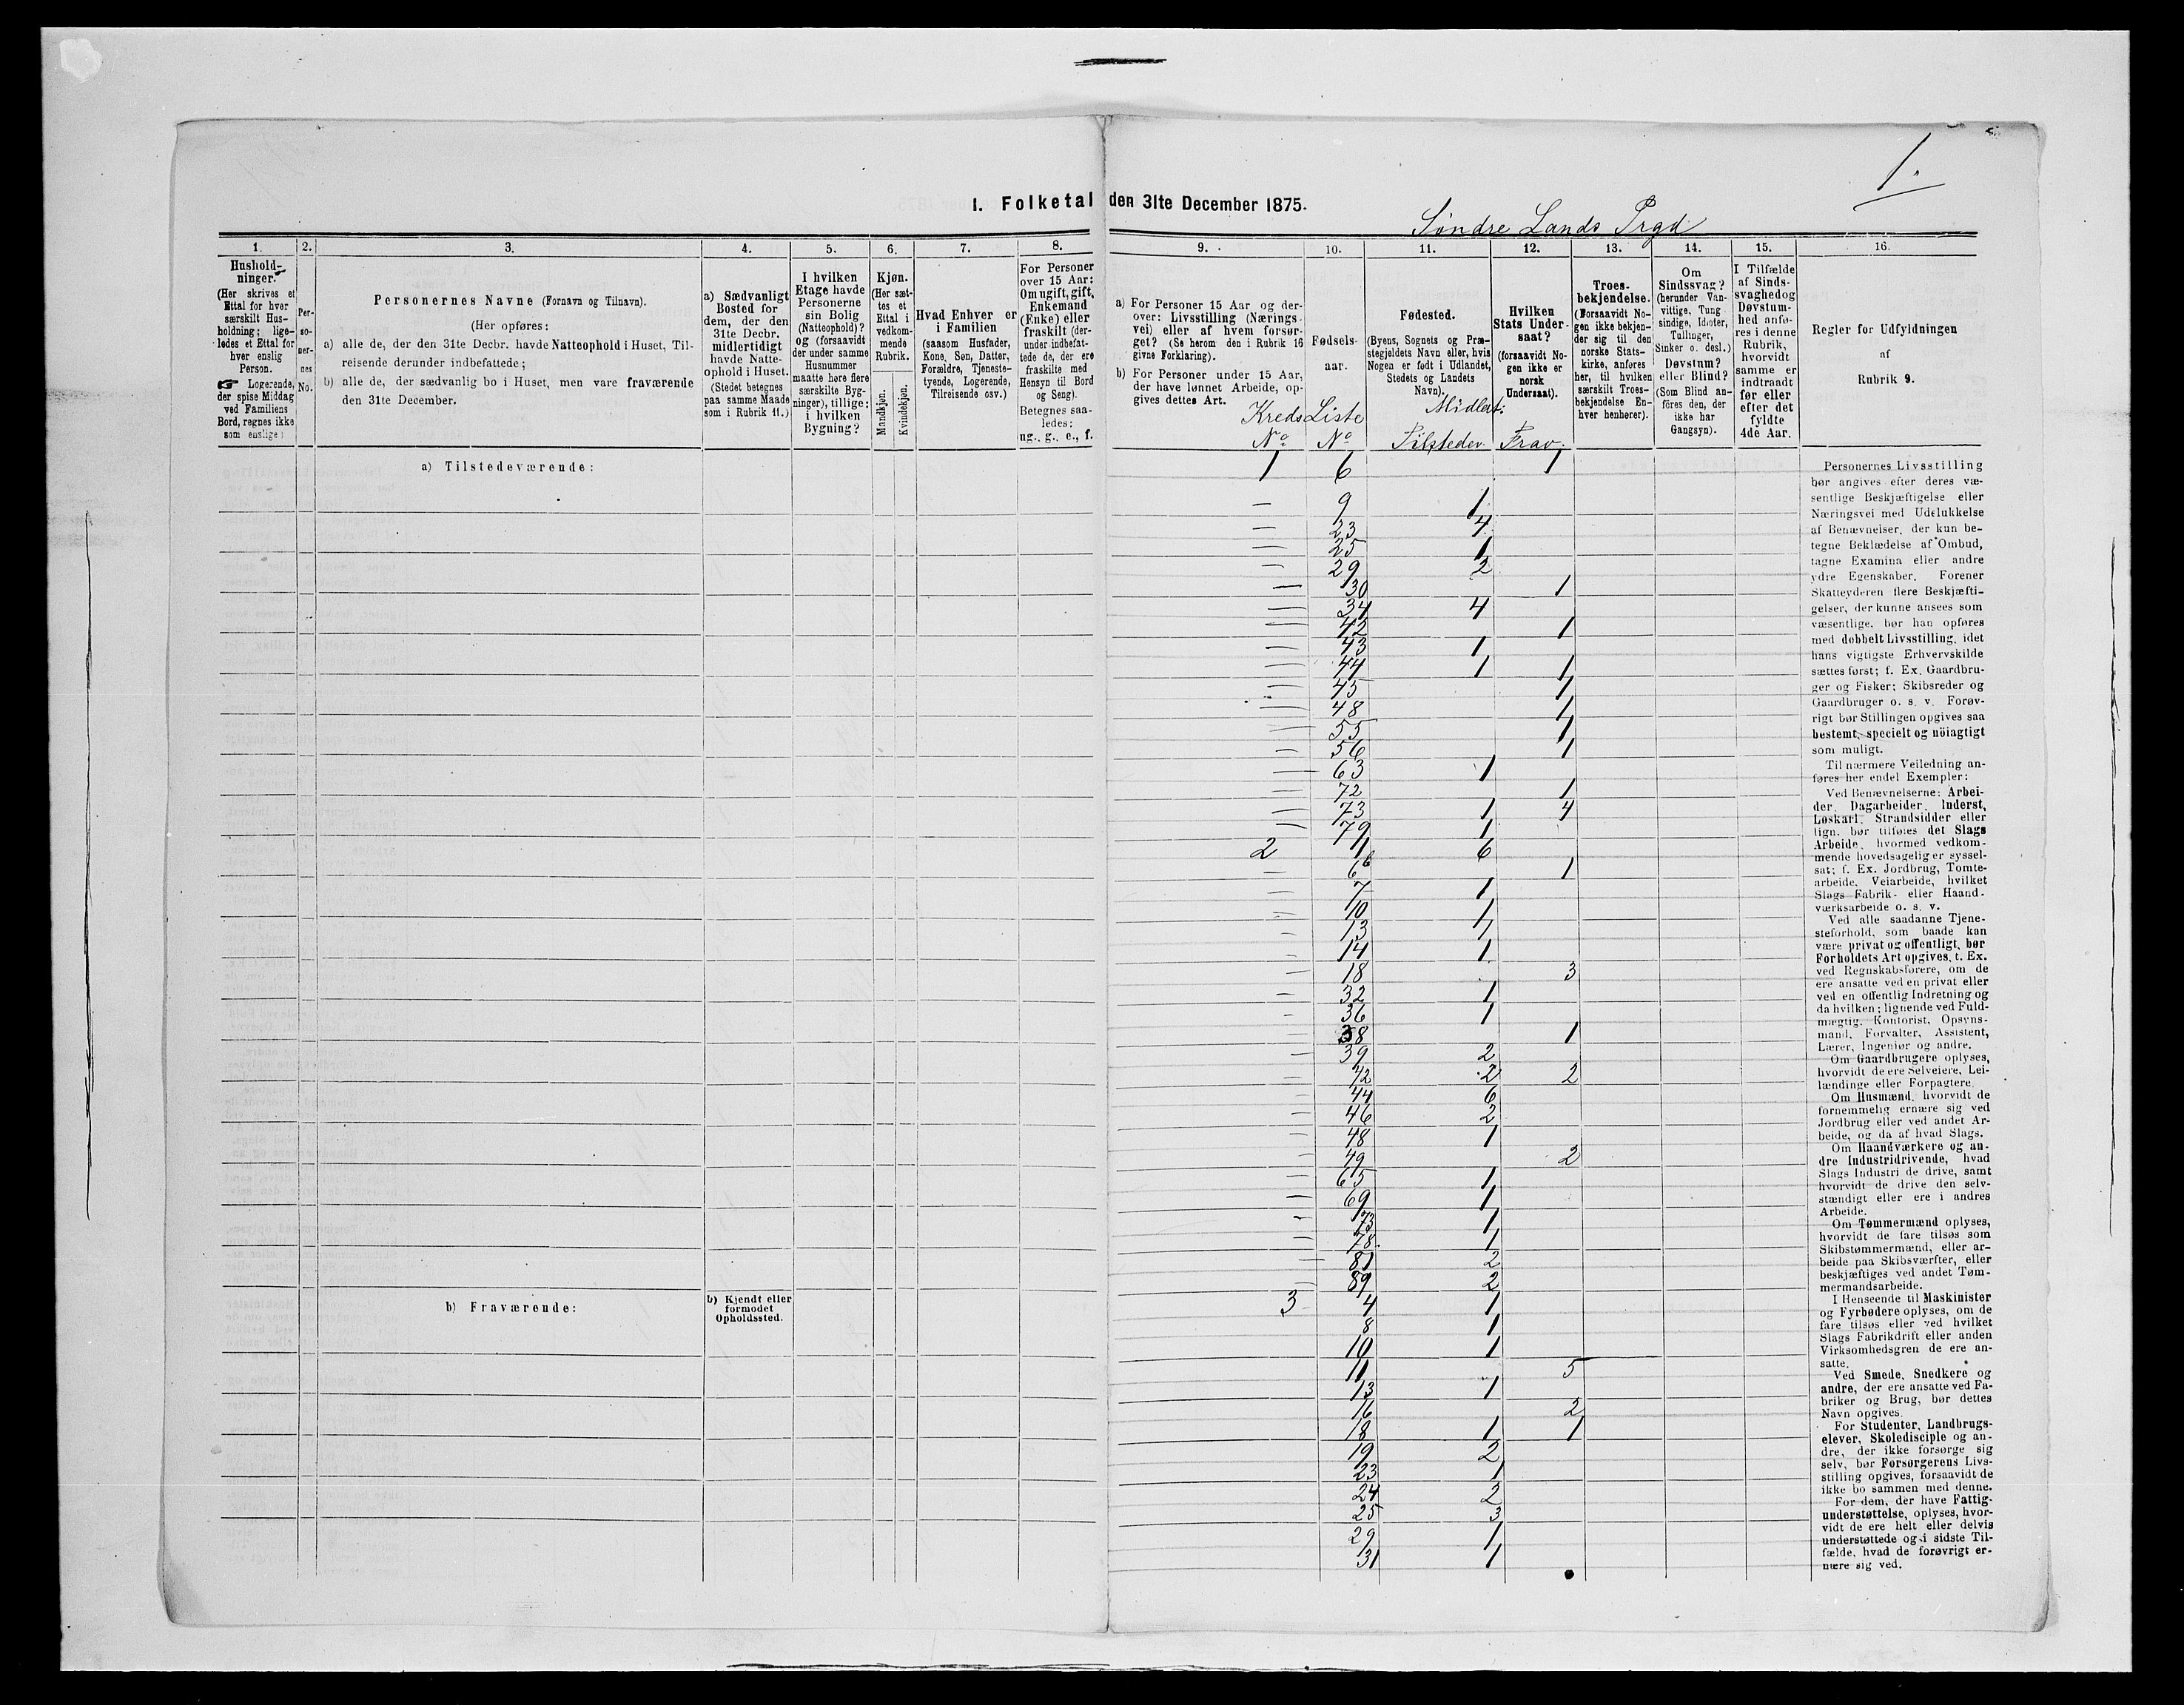 1.
I. Folketal den 31te December 1875.
Søndre Lands Prgd
1.
Hushold-
ninger.
(Her skrives et
Ettal for hver
særskilt Hus-
holdning; lige-
ledes et Ettal for
hver enslig
Person.
☞ Logerende,
der spise Middag
ved Familiens
Bord, regnes ikke
som enslige)
2.
Per-
so-
ner-
nes
No.
3.
Personernes Navne (Fornavn og Tilnavn).
(Her opføres:
a) alle de, der den 31te Decbr. havde Natteophold i Huset, Til-
reisende derunder indbefattede;
b) alle de, der sædvanlig bo i Huset, men vare fraværende
den 31te December.
4.
a) Sædvanligt
Bosted for
dem, der den
31te Decbr.
midlertidigt
havde Natte-
ophold i Huset.
(Stedet betegnes
paa samme Maade
som i Rubrik 11.)
5.
I hvilken
Etage havde
Personerne
sin Bolig
(Natteophold)?
og (forsaavidt
der under samme
Husnummer
maatte høre flere
særskilte Byg-
ninger), tillige:
i hvilken
Bygning?
6.
Kjøn.
(Her sæt-
tes et
Ettal i
vedkom-
mende
Rubrik.
Mandkjøn.
Kvindekjøn.
7.
Hvad Enhver er
i Familien
(saasom Husfader,
Kone, Søn, Datter,
Forældre, Tjeneste-
tyende, Logerende,
Tilreisende osv.)
8.
For Personer
over 15 Aar:
Om ugift, gift,
Enkemand
(Enke) eller
fraskilt (der-
under indbefat-
tede de, der ere
fraskilte med
Hensyn til Bord
og Seng).
Betegnes saa-
ledes:
ug., g., e., f.
9.
a) For Personer 15 Aar og der-
over: Livsstilling (Nærings-
vei) eller af hvem forsør-
get? (Se herom den i Rubrik 16
givne Forklaring).
b) For Personer under 15 Aar,
der have lønnet Arbeide, op-
gives dettes Art.
Kreds
No
10.
Fødsels-
aar.
Liste
No
11.
Fødested.
(Byens, Sognets og Præ-
stegjeldets Navn eller, hvis
Nogen er født i Udlandet,
Stedets og Landets
Navn).
Midlert:
Tilsteder
12.
Hvilken
Stats Under-
saat?
(forsaavidt No-
gen ikke er
norsk
Undersaat).
Frav:
13.
Troes-
bekjendelse.
(Forsaavidt No-
gen ikke bekjen-
der sig til den
norske Stats-
kirke, anføres
her, til hvilken
særskilt Troes-
bekjendelse En-
hver henhører).
14.
Om
Sindssvag?
(herunder Van-
vittige, Tung-
sindige, Idioter,
Tullinger,
Sinker o. desl.)
Døvstum?
eller Blind?
(Som Blind an-
føres den, der
ikke har
Gangsyn).
15.
I Tilfælde
af Sinds-
svaghed og
Døvstum-
hed anfø-
res i denne
Rubrik,
hvorvidt
samme er
indtraadt
før eller
efter det
fyldte
4de Aar.
16.
Regler for Udfyldningen
af
Rubrik 9.
a) Tilstedeværende:
1 6 1
— 9 1
— 23 4
— 25 1
— 29 2
— 30 1
— 34 4
— 42 1
— 43 1
— 44 1 1
— 45 1
— 48 1
— 55 1
— 56 1
— 63 1
72 1
— 73 1 4
— 79 1
2 1 6
— 6b 1
— 7 1
— 10 1
— 13 1
— 14 1
— 18 3
— 32 1
— 36 1
— 38 1
— 39 2
— 42 2 2
— 44 6
— 46 2
— 48 1
— 49 2
— 65 1
— 69 1
— 73 1
— 78 1
— 81 2
— 89 2
b) Fraværende:
b) Kjendt eller
formodet
Opholdssted.
3 4 1
8 1
10 1
11 5
13 1
16 2
18 1 1
19 2
23 1
24 2
25 3
29 1
31 1
Personernes Livsstilling
bør angives efter deres væ-
sentlige Beskjæftigelse eller
Næringsvei med Udelukkelse
af Benævnelser, der kun be-
tegne Beklædelse af Ombud,
tagne Examina eller andre
ydre Egenskaber. Forener
Skatteyderen flere Beskjæfti-
gelser, der kunne ansees som
væsentlige, bør han opføres
med dobbelt Livsstilling, idet
hans vigtigste Erhvervskilde
sættes først; f. Ex. Gaardbru-
ger og Fisker; Skibsreder og
Gaardbruger o. s. v. Forøv-
rigt bør Stillingen opgives saa
bestemt, specielt og nöiagtigt
som muligt.
Til nærmere Veiledning an-
føres her endel Exempler:
Ved Benævnelserne: Arbei-
der, Dagarbeider, Inderst,
Løskarl, Strandsidder eller
lign. bør tilføies det Slags
Arbeide, hvormed vedkom-
mende hovedsagelig er syssel-
sat; f. Ex. Jordbrug, Tomte-
arbeide, Veiarbeide, hvilket
Slags Fabrik- eller Haand-
værksarbeide o. s. v.
Ved alle saadanne Tjene-
steforhold, som baade kan
være privat og offentligt, bør
Forholdets Art opgives, t. Ex.
ved Regnskabsførere, om de
ere ansatte ved en privat eller
ved en offentlig Indretning og
da hvilken; lignende ved Fuld-
mægtig, Kontorist, Opsyns-
mand, Forvalter, Assistent,
Lærer, Ingeniør og andre.
Om Gaardbrugere oplyses,
hvorvidt de ere Selveiere, Lei-
lændinge eller Forpagtere.
Om Husmænd, hvorvidt de
fornemmelig ernære sig ved
Jordbrug eller ved andet Ar-
beide, og da af hvad Slags.
Om Haandværkere og an-
dre Industridrivende, hvad
Slags Industri de drive, samt
hvorvidt de drive den selv-
stændigt eller ere i andres
Arbeide.
Om Tømmermænd oplyses,
hvorvidt de fare tilsøs som
Skibstømmermænd, eller ar-
beide paa Skibsværfter, eller
beskjæftiges ved andet Tøm-
mermandsarbeide.
I Henseende til Maskinister
og Fyrbødere oplyses, om de
fare tilsøs eller ved hvilket
Slags Fabrikdrift eller anden
Virksomhedsgren de ere an-
satte.
Ved Smede, Snedkere og
andre, der ere ansatte ved Fa-
briker og Brug, bør dettes
Navn opgives.
For Studenter, Landbrugs-
elever, Skoledisciple og an-
dre, der ikke forsørge sig
selv, bør Forsørgerens Livs-
stilling opgives, forsaavidt de
ikke bo sammen med denne.
For dem, der have Fattig-
understøttelse, oplyses, hvor-
vidt de ere helt eller delvis
understøttede og i sidste Til-
fælde, hvad de forøvrigt er-
nære sig ved.